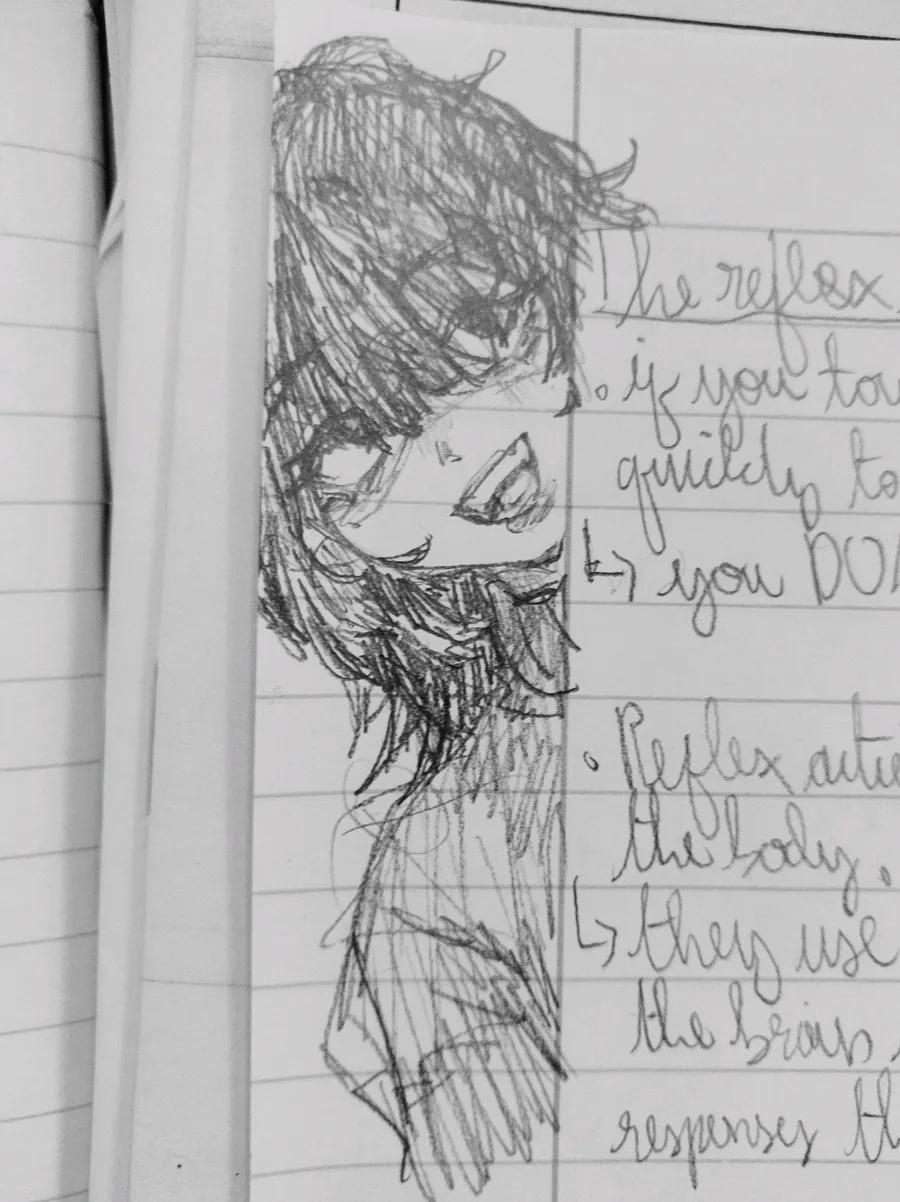 The reflex
. if you tou
quickly to
↳ you DO
. Reflex actio
the body.
↳ they use
the brain,
responses th